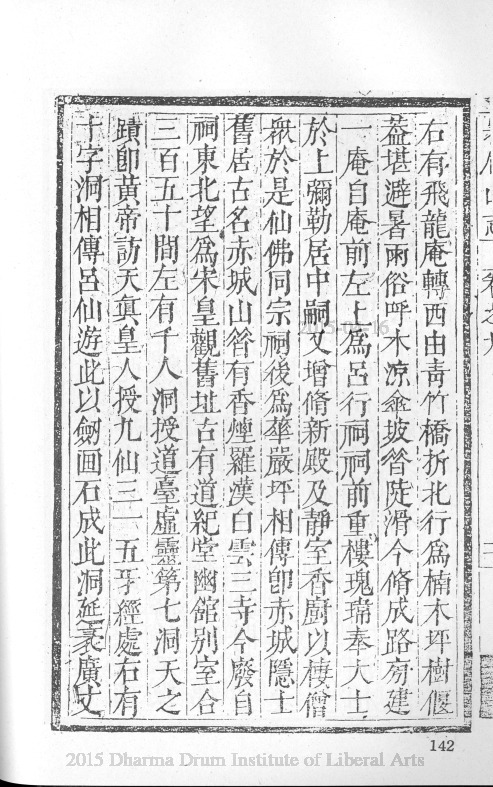 右有飛龍庵轉西由靑竹橋折北行爲楠木坪樹偃
葢堪避暑雨俗呼木涼傘坡昝陡滑今脩成路旁建
一庵自庵前左上爲呂行祠祠前重樓瑰瑋奉大士
於上彌勒居中嗣又增脩新殿及靜室香廚以棲僧
衆於是仙佛同宗祠後爲華嚴坪相傳卽赤城隱士
舊居古名赤城山昝有香煙羅漢白雲三寺今廢自
祠東北望爲宋皇觀舊址古有道紀堂幽舘別室合
三百五十間左有千人洞授道臺虛靈第七洞天之
蹟卽黃帝訪天眞皇人授九仙三一五牙經處右有
十字洞相傳呂仙遊此以劒画石成此洞延袤廣丈
142
2015 Dharma Drum Institute of Liberal Arts